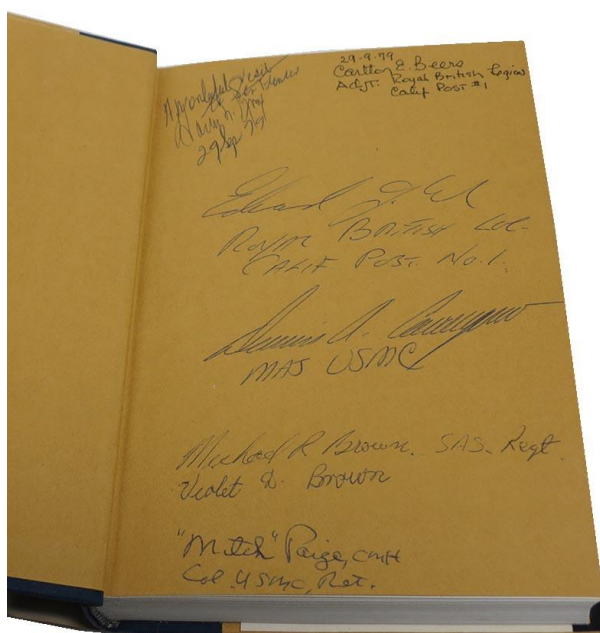 A Wonderful Visit
29 Sep
29-9-79
Carlton E. Beers
ADJT. Royal British Legion
Calif Post #1
Edward
ROYAL BRITISH LEG-
CALIF POST. No. 1.
Dennis A.
MAJ USMC
Michael R Brown. SAS. Regt.
Violet D. Brown
"Mitch" Paige, CMH
Col. USMC, Ret.